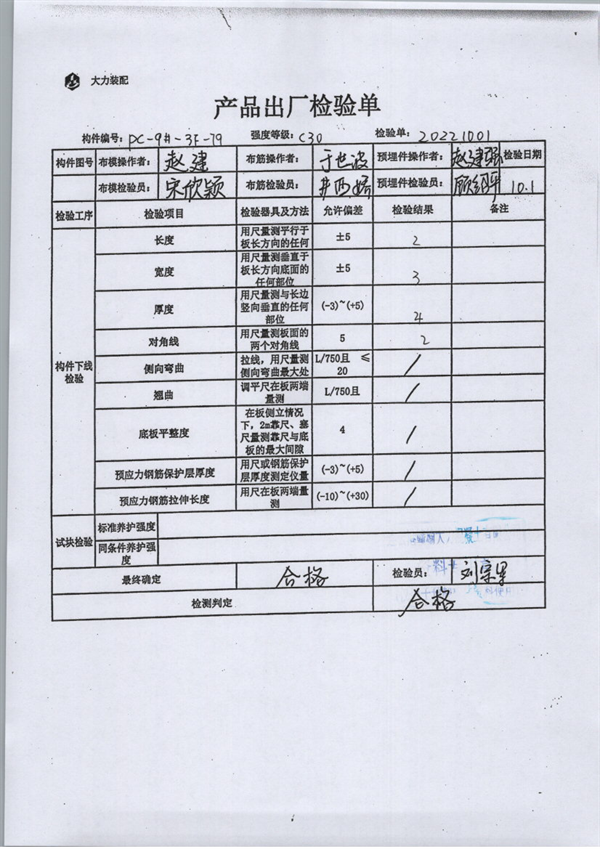 大力装配
产品出厂检验单
构件编号: PC-9#-3F-79 强度等级: C30 检验单: 20221001
构件图号 布模操作者: 赵建 布筋操作者: 于世波 预埋件操作者: 赵建强 检验日期
布模检验员: 宋欣颖 布筋检验员: 预埋件检验员: 10.1
检验工序 检验项目 检验器具及方法 允许偏差 检验结果 备注
构件下线检验
长度 用尺量测平行于板长方向的任何 ±5 2
宽度 用尺量测垂直于板长方向底面的任何部位 ±5 3
厚度 用尺量测与长边竖向垂直的任何部位 (-3)~(+5) 4
对角线 用尺量测板面的两个对角线 5 2
侧向弯曲 拉线，用尺量测侧向弯曲最大处 L/750且 ≤20 /
翘曲 调平尺在板两端量测 L/750且 /
底板平整度 在板侧立情况下，2m靠尺、塞尺量测靠尺与底板的最大间隙 4 /
预应力钢筋保护层厚度 用尺或钢筋保护层厚度测定仪量 (-3)~(+5) /
预应力钢筋拉伸长度 用尺在板两端量测 (-10)~(+30) /
试块检验 标准养护强度
同条件养护强度
最终确定 合格 检验员:
检测判定 合格